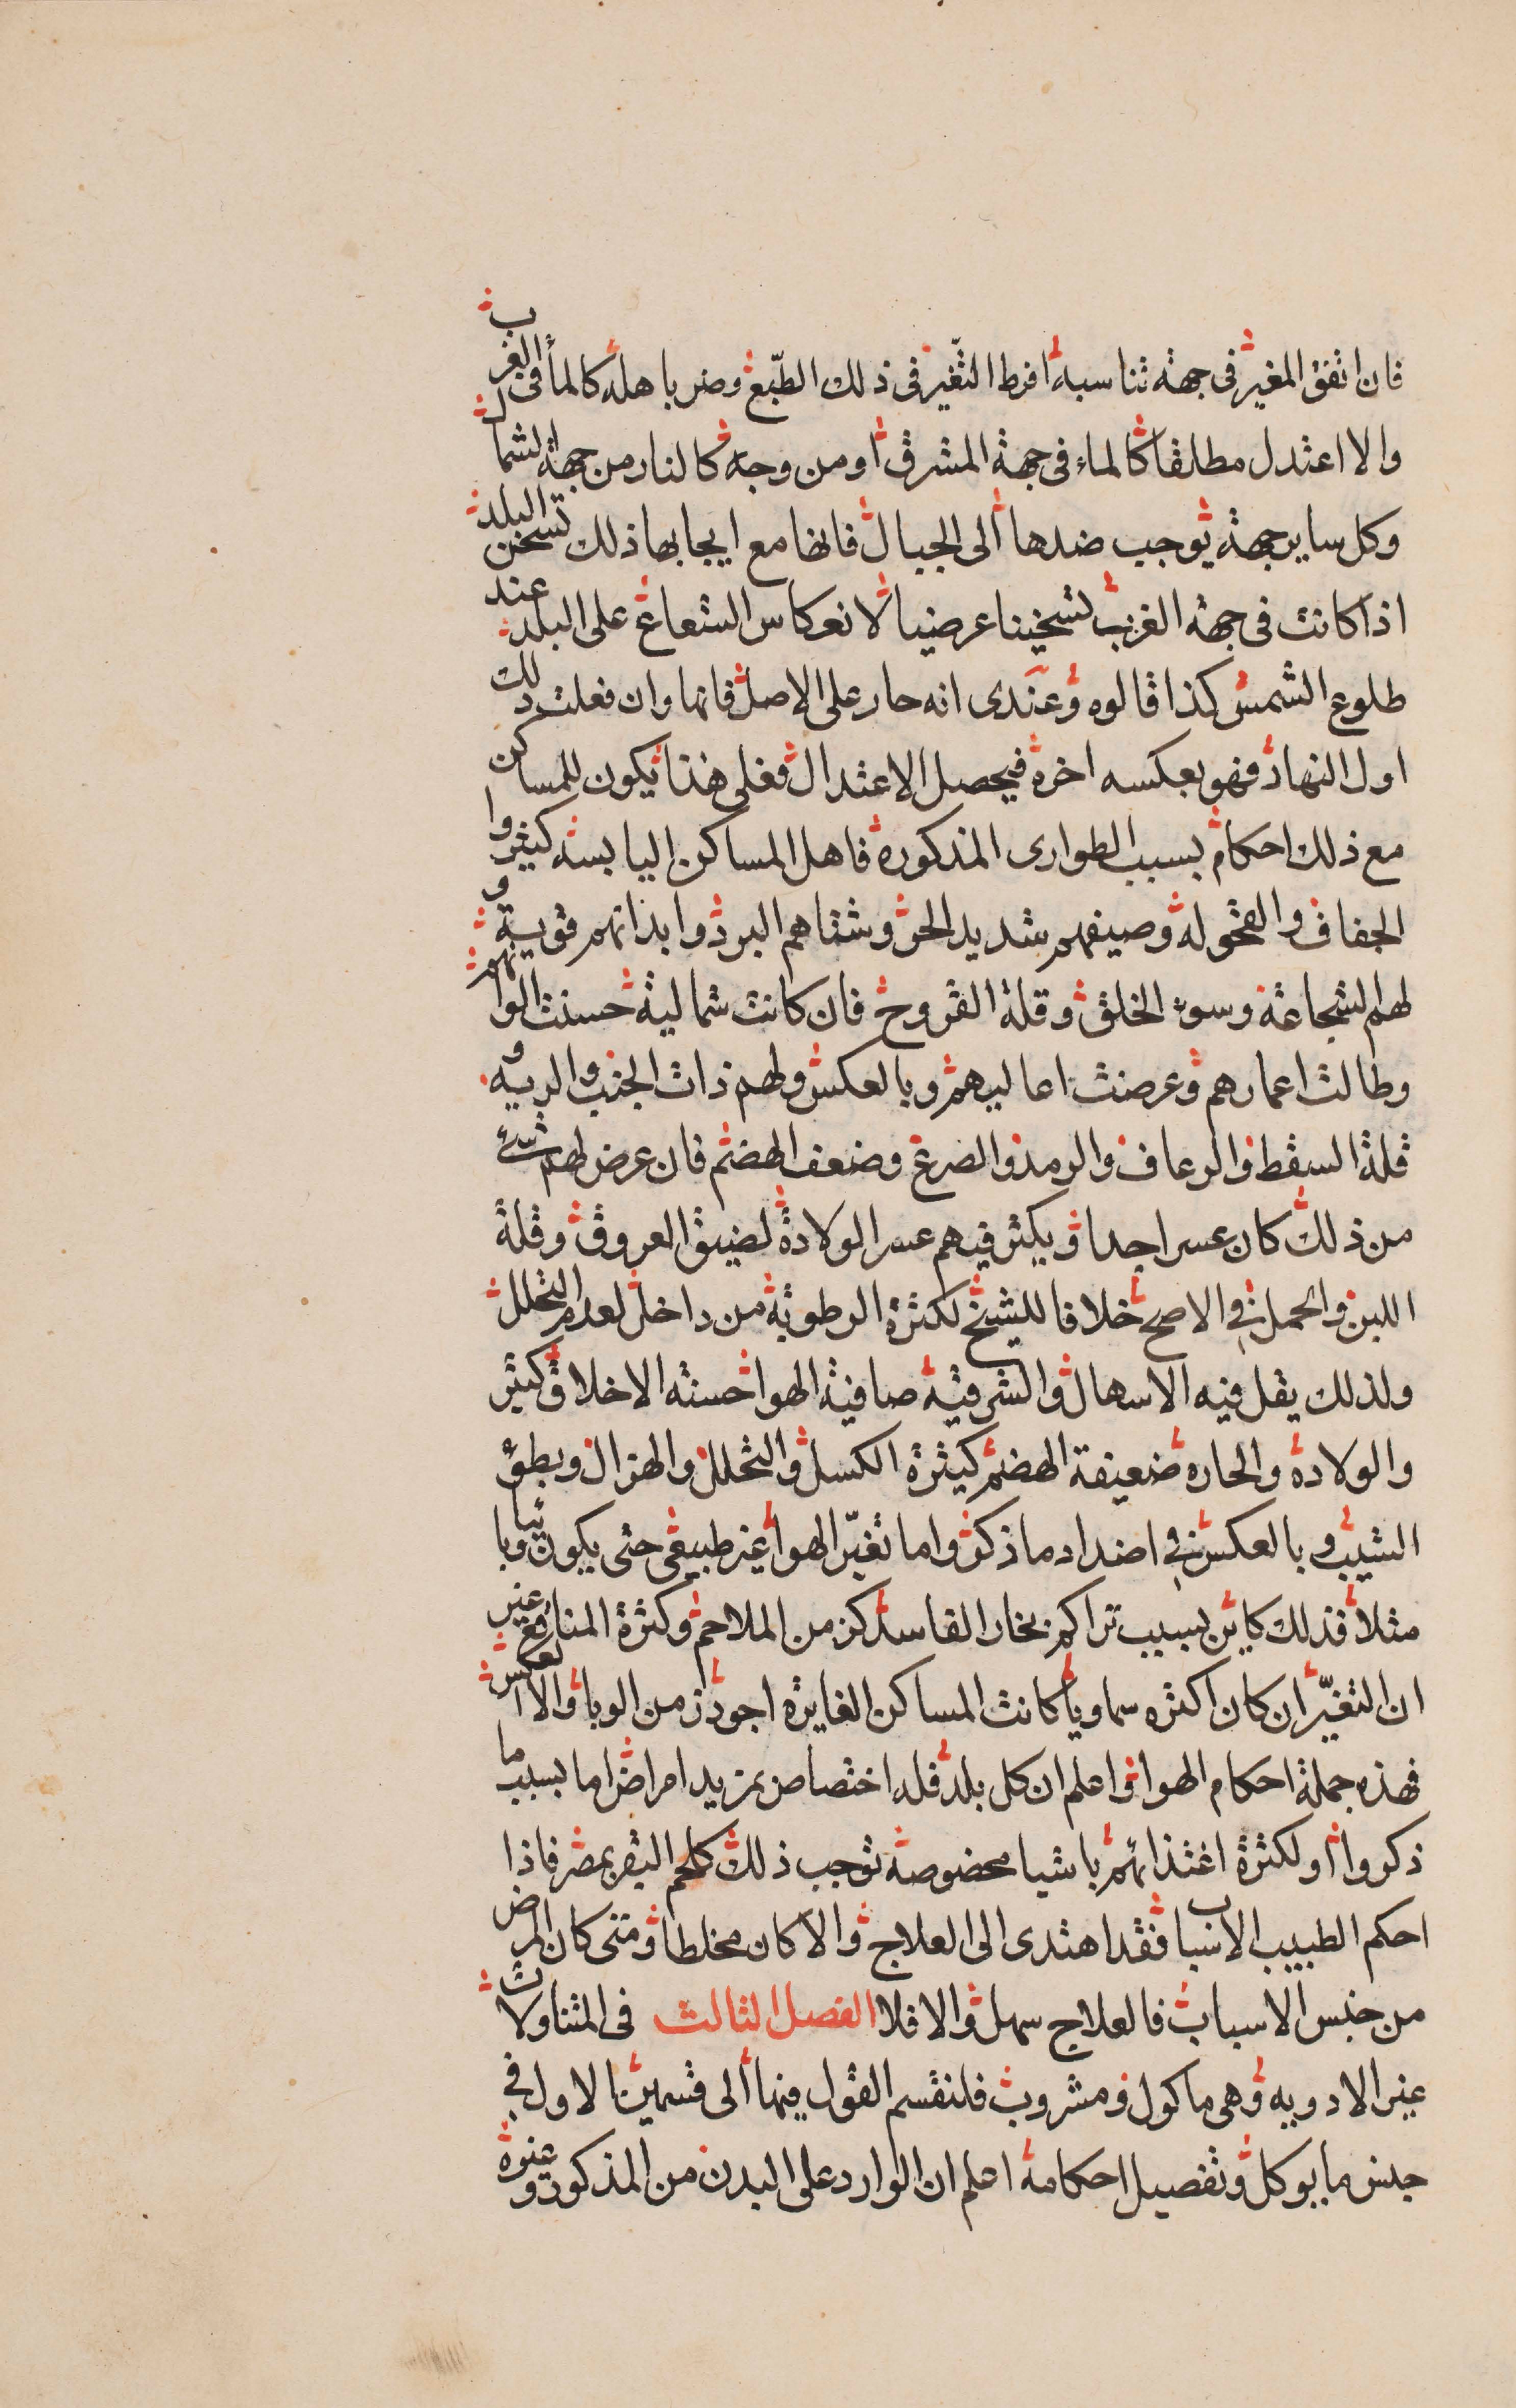 فان اتفق المغير فى جهة تناسبه افرط التغير فى ذلك الطبع وضر باهله كالمأ فى الغرب
والا اعتدل مطلقا كالماء فى جهة المشرق او من وجه كالنار من جهة الشمال
وكل ساير جهة يوجب ضدها الى الجبال فانها مع ايجابها ذلك تسخن البلد
اذا كانت فى جهة الغرب تسخينا عرضيا لانعكاس الشعاع على البلد عند
طلوع الشمس كذا قالوه وعندى انه حار على الاصل فانها وان فعلت ذلك
اول النهار فهو بعكسه اخره فيحصل الاعتدال فعلى هذا يكون للمساكن
مع ذلك احكام بسبب الطوارى المذكورة فاهل المساكن اليابسة كثيروا
الجفاف والقحوله وصيفهم شديد الحر وشتاهم البرد وابدانهم قوية و
لهم الشجاعة وسوء الخلق وقلة القروح فان كانت شمالية حسنت الوانهم
وطالت اعمارهم وعرضت اعاليهم وبالعكس ولهم ذات الجنب والريه و
قلة السقط والرعاف والرمد والصرع وضعف الهضم فان عرض لهم شئ
من ذلك كان عسرا جدا ويكثر فيهم عسر الولادة لضيق العروق وقلة
اللبن والحمل فى الاصح خلافا للشيخ لكثرة الرطوبة من داخل لعدم التحلل
ولذلك يقل فيه الاسهال والشرقية صافية الهوا حسنه الاخلاق كثير
والولادة والحاره ضعيفة الهضم كثيرة الكسل والتحلل والهزال وبطؤ
الشيب وبالعكس فى اضداد ما ذكر واما تغيّر الهوا غير طبيعى حتى يكون وبائيا
مثلا فذلك كاين بسبب تراكم بخار القاسد كزمن الملاحم وكثرة المناقع غير
ان التغيّر ان كان اكثره سماويا كانت المساكن الغايره اجود زمن الوبا والا العكس
فهذه جملة احكام الهوا واعلم ان كل بلد فله اختصاص بمزيد امراض اما بسبب ما
ذكروا او لكثرة اغتذائهم باشيا مخصوصه توجب ذلك كلحم البقر بمصر فاذا
احكم الطبيب الاسباب فقد اهتدى الى العلاج والا كان مخلطا ومتى كان المرض
من جنس الاسباب فالعلاج سهل والا فلا الفصل الثالث فى المتناولات
غير الادويه وهى ماكول ومشروب فلنقسم القول فيها الى قسمين الاول فى
جنس ما يوكل وتفصيل احكامه اعلم ان الوارد على البدن من المذكور وغيره